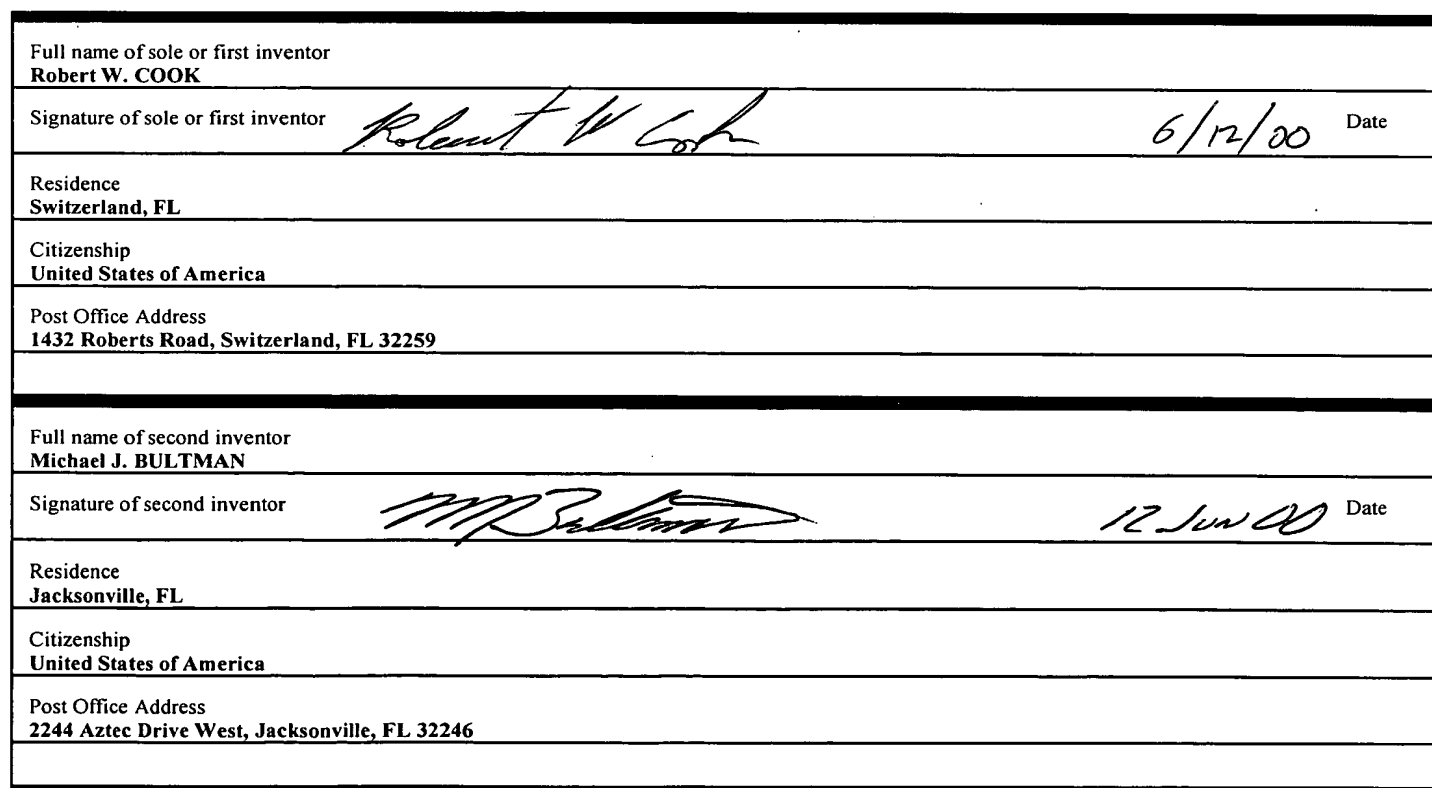 Full name of sole or first inventor
Robert W. COOK
Signature of sole or first inventor Robert W Cook 6/12/00 Date
Residence
Switzerland, FL
Citizenship
United States of America
Post Office Address
1432 Roberts Road, Switzerland, FL 32259
Full name of second inventor
Michael J. BULTMAN
Signature of second inventor MJBultman 12 JUN 00 Date
Residence
Jacksonville, FL
Citizenship
United States of America
Post Office Address
2244 Aztec Drive West, Jacksonville, FL 32246